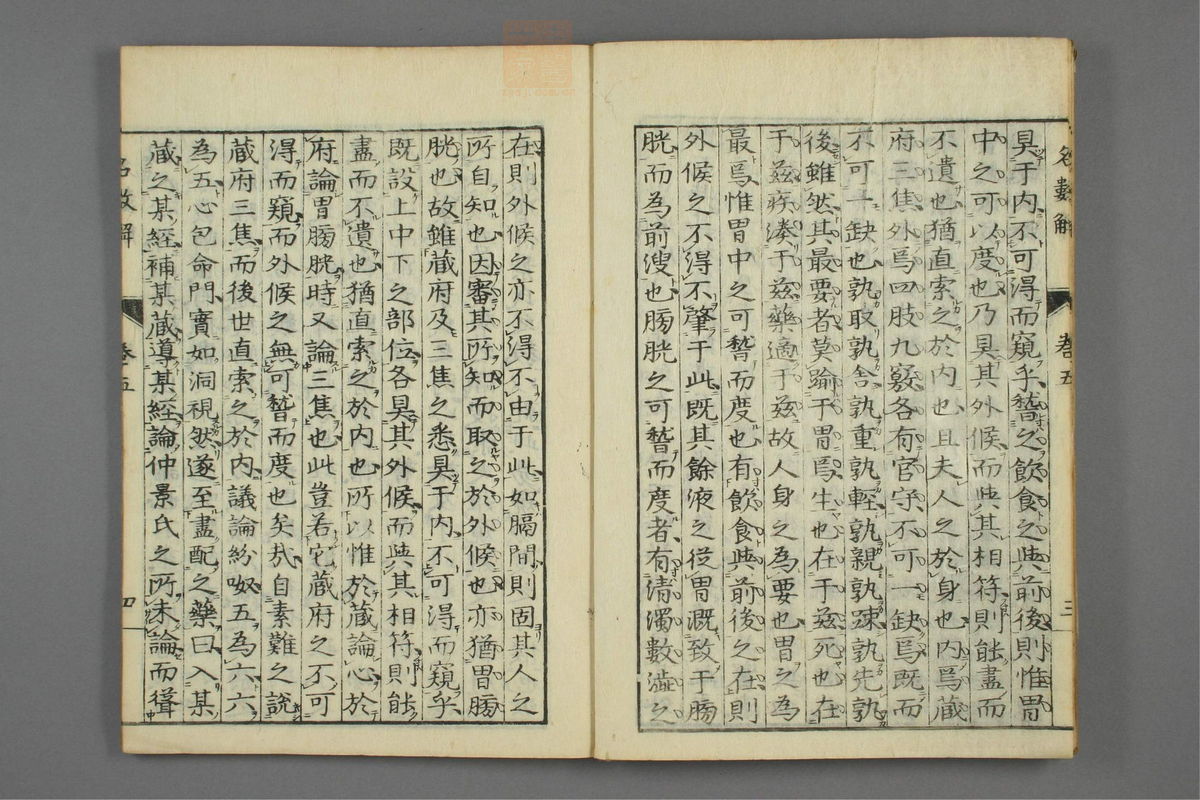 名數解　卷五　三
具于内不可得而窺乎嘗之飲食之與前後則惟胃
中之可以度也乃具其外候而與其相符則能盡而
不遺也猶直索之於内也且夫人之於身也内爲藏
府三焦外爲四肢九竅各有官守不可一缺焉既而
不可一缺也孰取孰舍孰重孰輕孰親孰疎孰先孰
後雖然其最要者莫踰于胃焉生也在于玆死也在
于玆疾湊于玆藥適于玆故人身之為要也胃之為
最焉惟胃中之可嘗而度也有飲食與前後之在則
外候之不得不肇于此既其餘液之從胃溉致于膀
胱而為前溲也膀胱之可嘗而度者有清濁數澁之
在則外候之亦不得不由于此如膈間則固其人之
所自知也因審其所知而取之於外候也亦猶胃膀
胱也故雖藏府及三焦之悉具于内不可得而窺乎
既設上中下之部位各具其外候而與其相符則能
盡而不遺也猶直索之於内也所以惟於藏論心於
府論胃膀胱時又論三焦也此豈若它藏府之不可
得而窺而外候之無可嘗而度也矣哉自素難之説
藏府三焦而後世直索之於内議論紛呶五為六六
為五心包命門實如洞視然遂至盡配之藥曰入某
藏之某經補某藏導某經論仲景氏之所未論而得
名數解　卷五　四